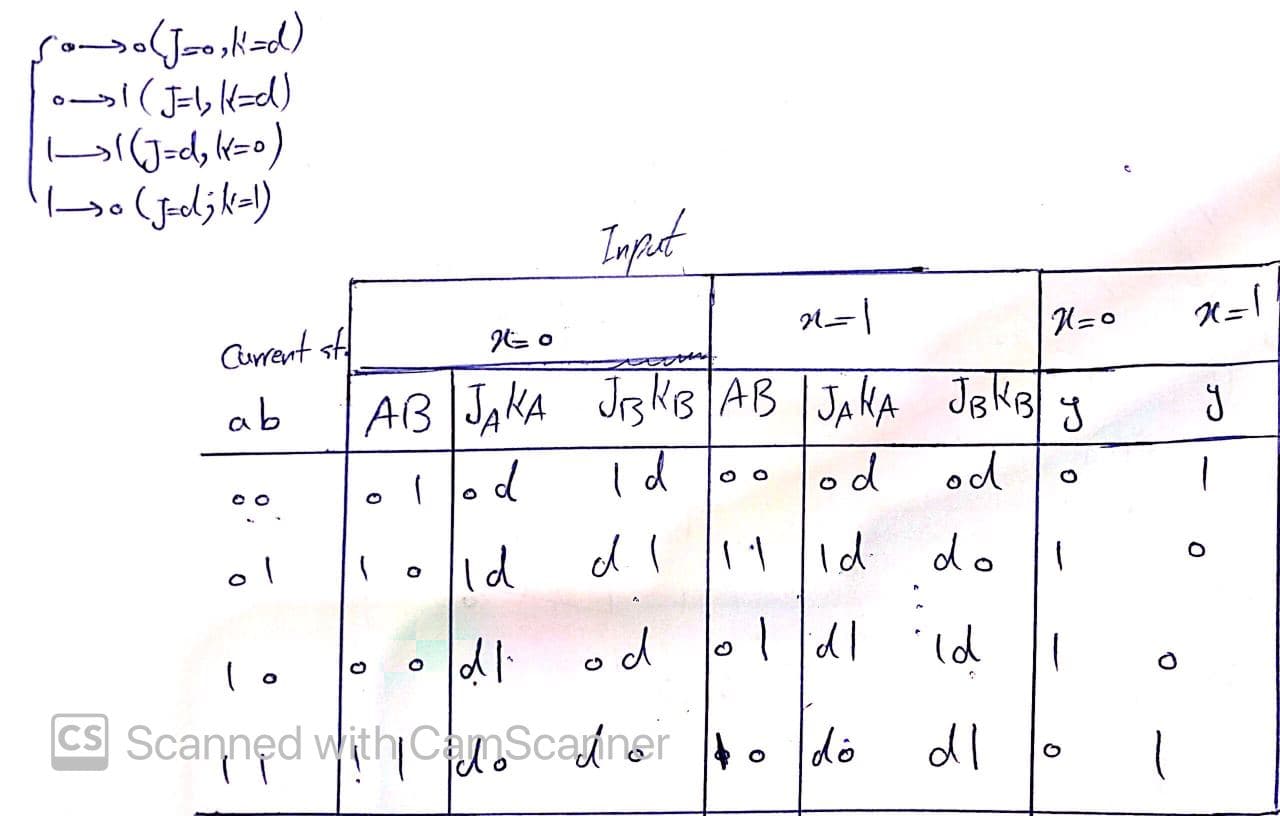 0→0(J=0,K=d)
0→1(J=1,K=d)
1→1(J=d,K=0)
1→0(J=d;K=1)
Input
Current st. x=0 x=1 x=0 x=1
ab AB JAKA JBKB AB JAKA JBKB y y
00 01 0d 1d 00 0d 0d 0 1
01 10 1d d1 11 1d d0 1 0
10 00 d1 0d 01 d1 1d 1 0
11 11 d0 d0 10 d0 d1 0 1
CS Scanned with CamScanner